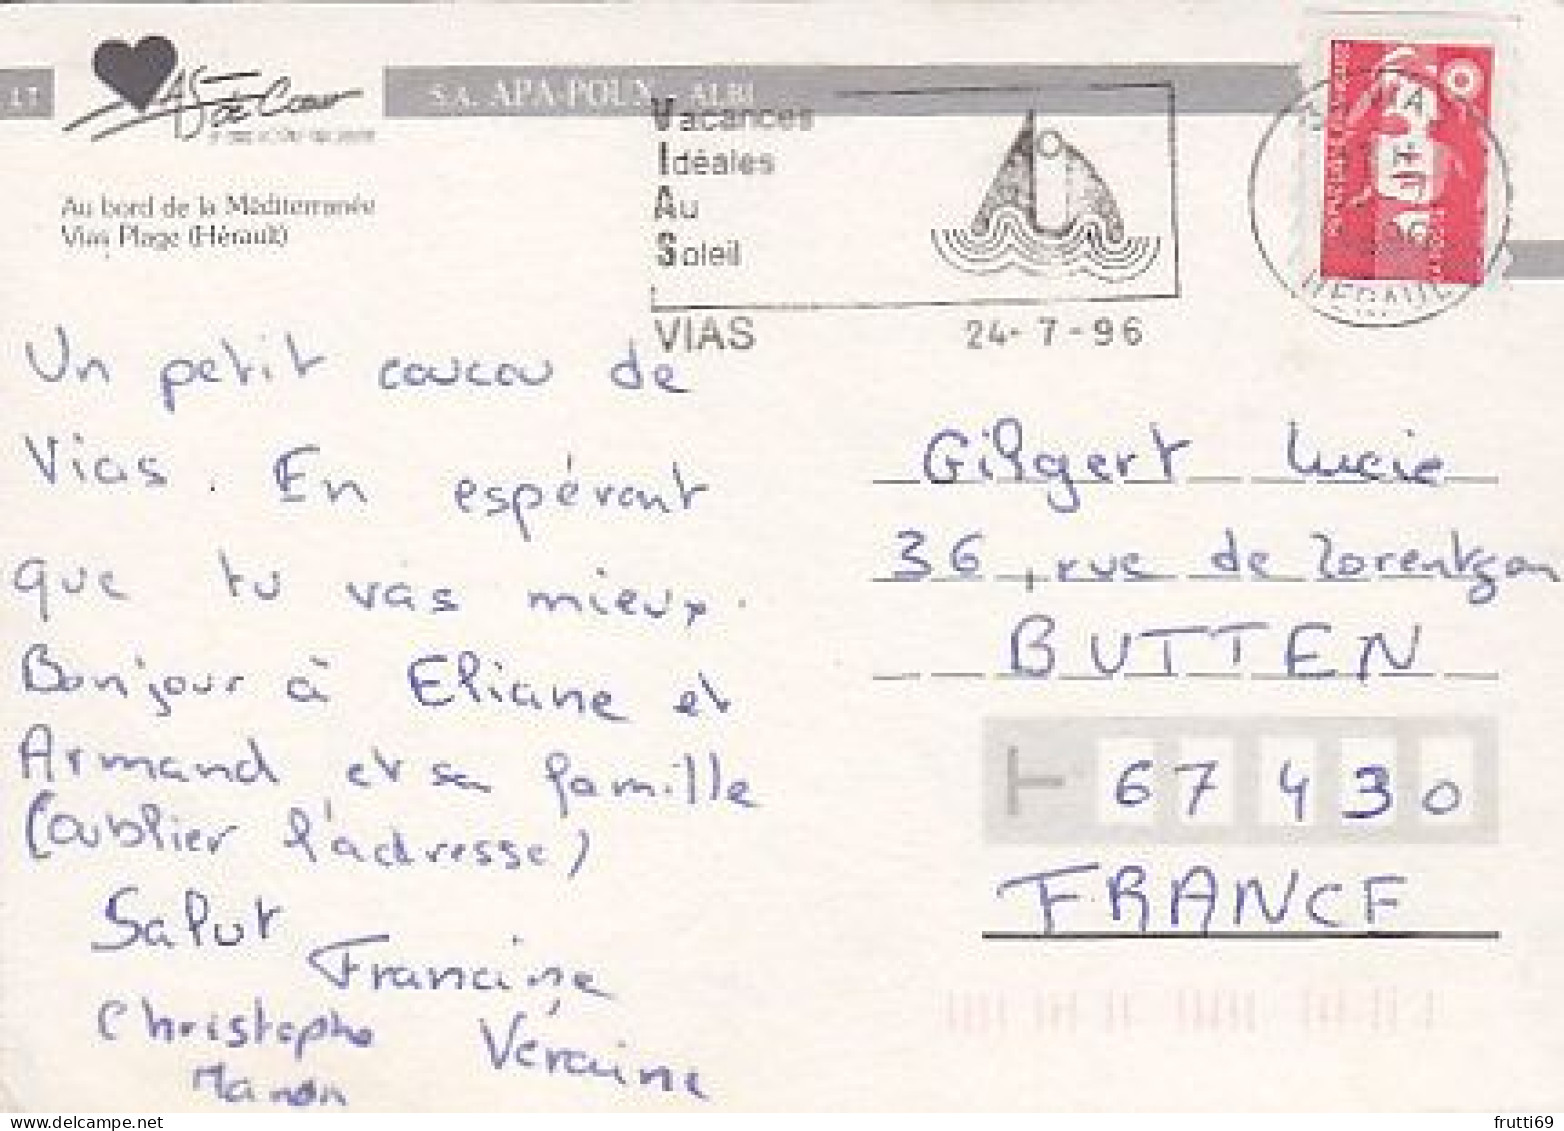 17
S.A. APA-POUX - ALBI
Au bord de la Méditerranée
Vias Plage (Hérault)
Vacances
Idéales
Au
Soleil
VIAS 24-7-96
HERAULT
Un petit coucou de
Vias. En espérant
que tu vas mieux.
Bonjour à Eliane et
Armand et sa famille
(oublier l'adresse)
Salut
Francine
Christophe Véraine
Manon
Gilgert Lucie
36, rue de Lorentzen
BUTTEN
67430
FRANCE
frutti69